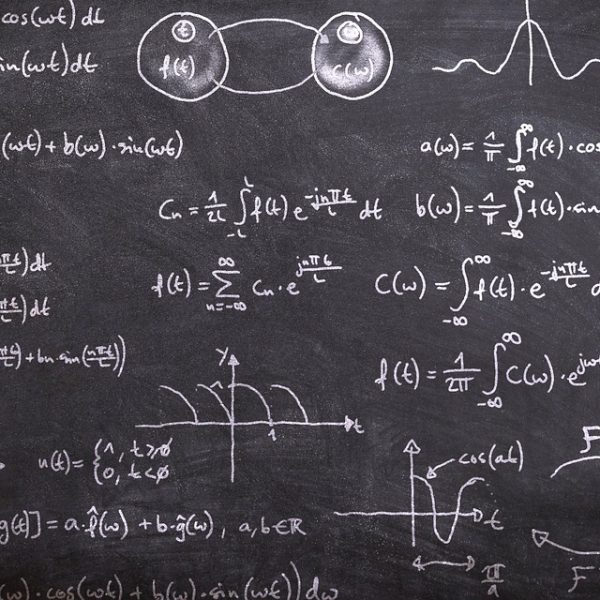 cos(ωt) dt
sin(ωt)dt
t
f(t)
ω
C(ω)
(ωt) + b(ω)·sin(ωt)
a(ω) = 1/π ∫_{-∞}^{∞} f(t)·cos
Cn = 1/2L ∫_{-L}^{L} f(t) e^{-jnπt/L} dt
b(ω) = 1/π ∫_{-∞}^{∞} f(t)·sin
nπt/L) dt
f(t) = Σ_{n=-∞}^{∞} Cn·e^{jnπt/L}
C(ω) = ∫_{-∞}^{∞} f(t)·e^{-jnπt/L} d
πt/L) dt
πt/L) + bn·sin(nπt/L))
f(t) = 1/2π ∫_{-∞}^{∞} C(ω)·e^{jω
y
1
t
u(t) = {1, t≥0
0, t<0
cos(at)
t
π/a
F
F
g(t)] = a·f̂(ω) + b·ĝ(ω), a,b∈ℝ
(ω)·cos(ωt) + b(ω)·sin(ωt)) dω